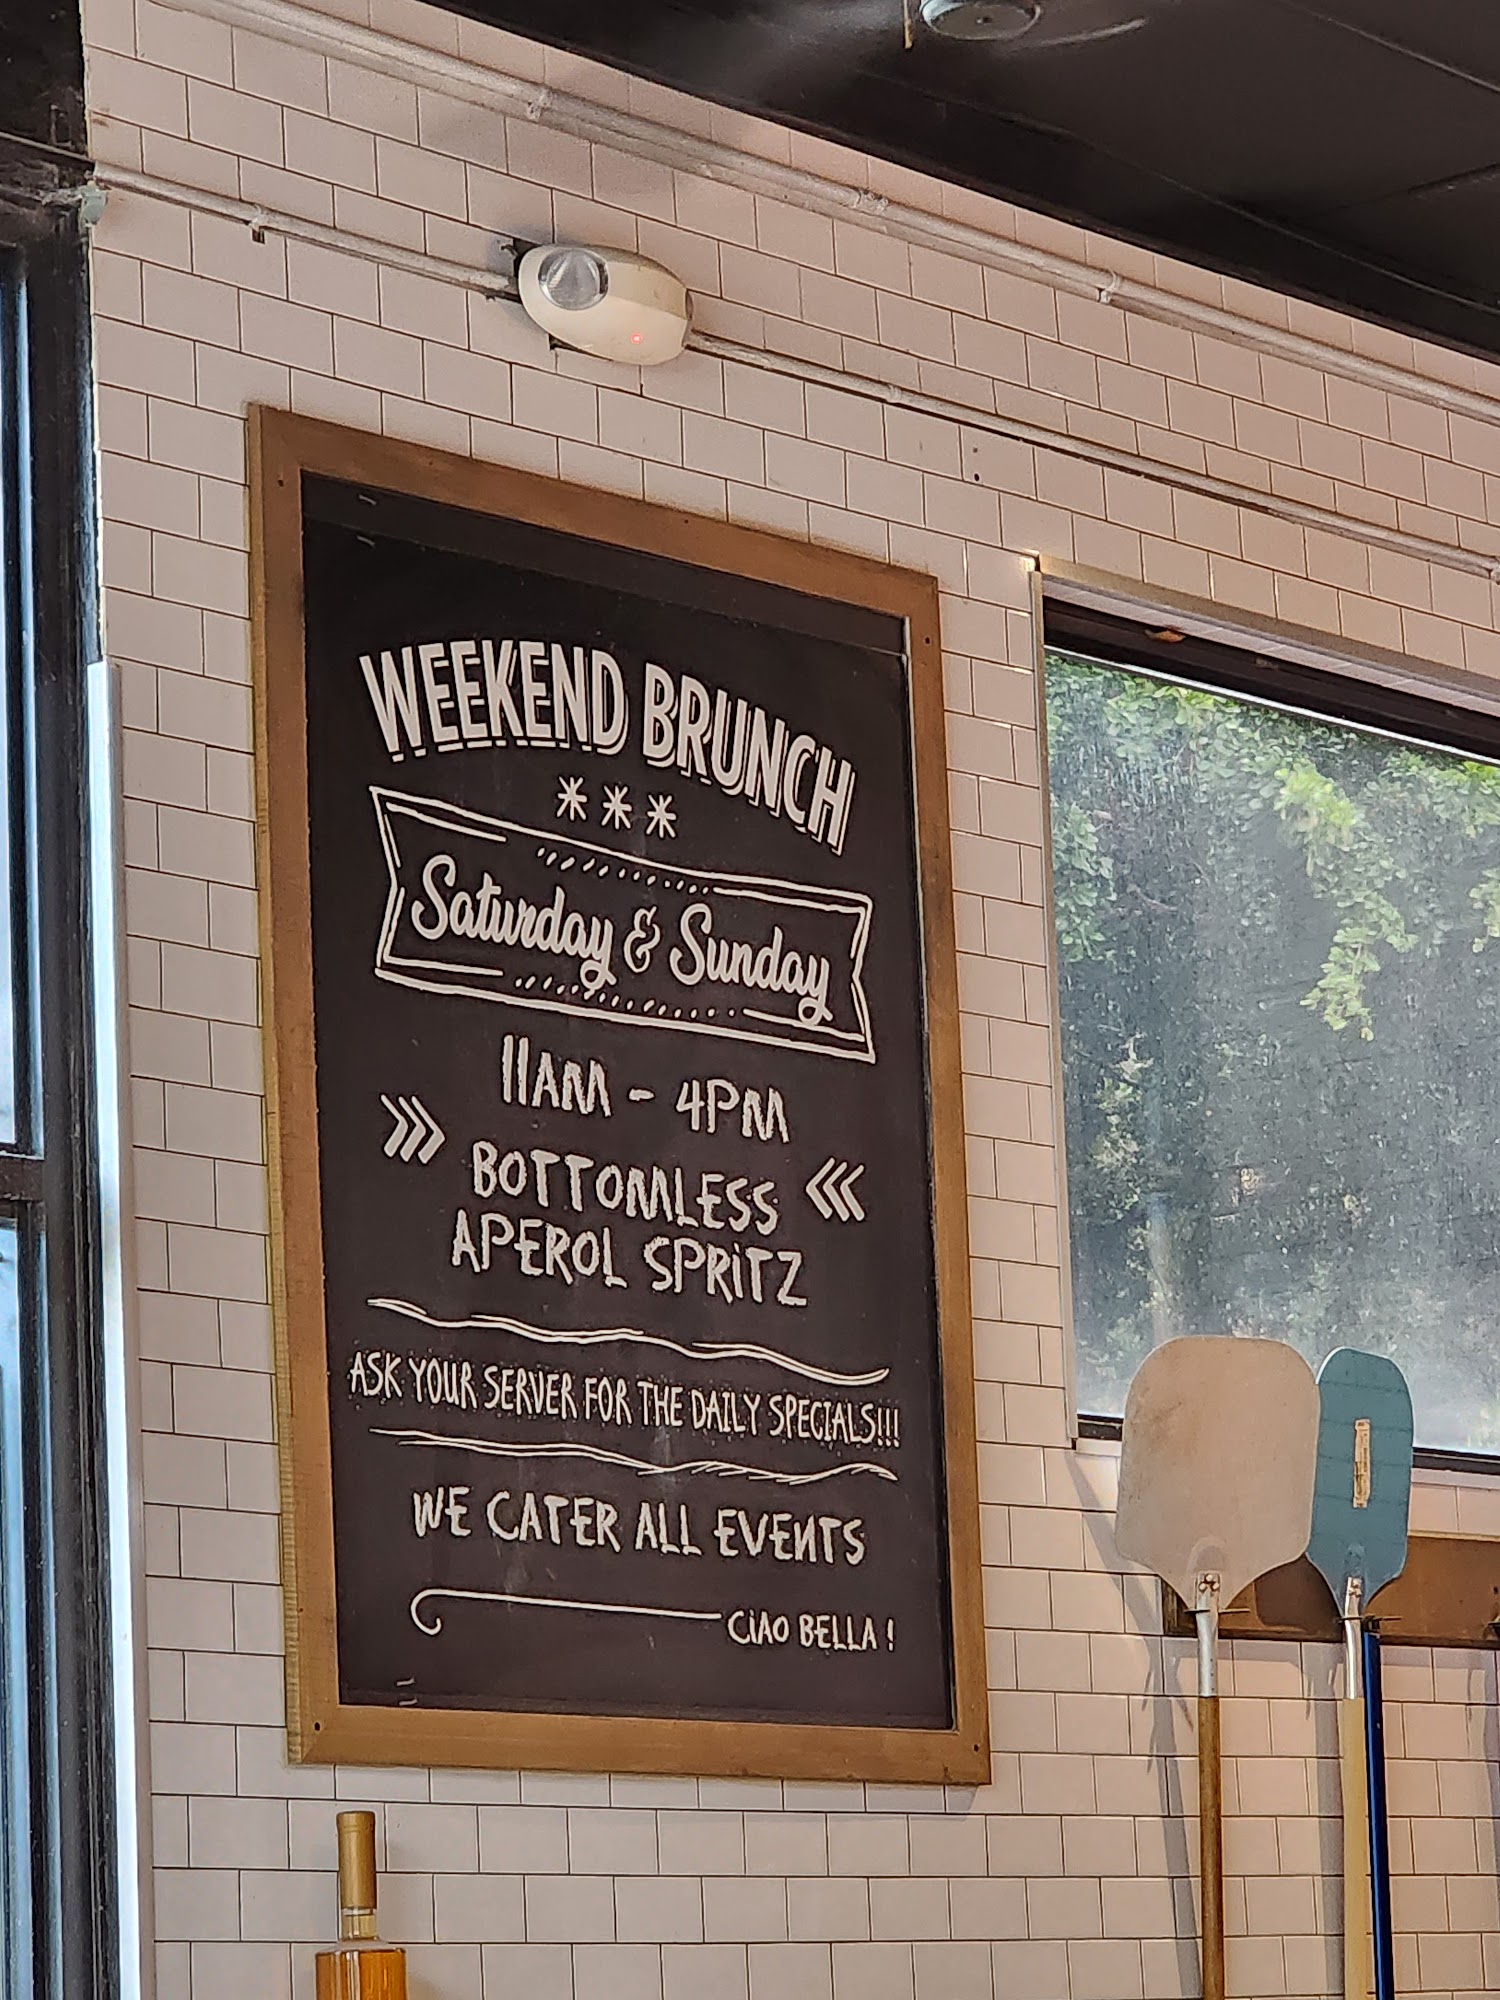 WEEKEND BRUNCH
Saturday & Sunday
11AM - 4PM
BOTTOMLESS
APEROL SPRiTZ
ASK YOUR SERVER FOR THE DAILY SPECIALS!!!
WE CATER ALL EVENTS
CiAO BELLA !